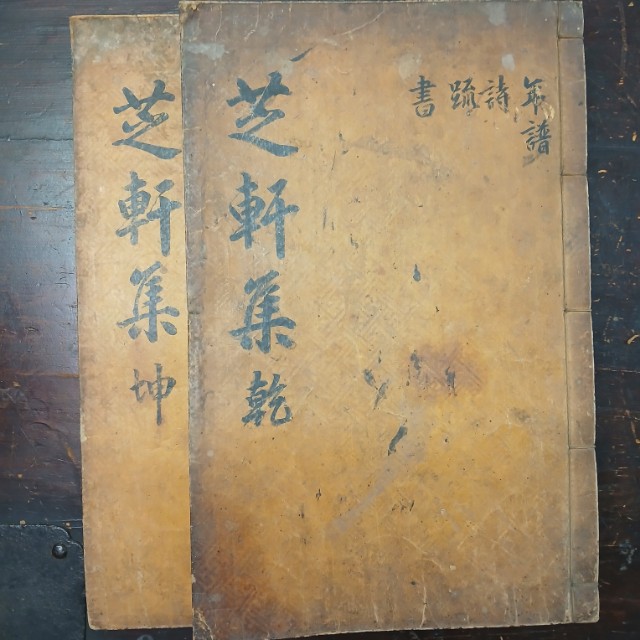 年譜
詩
疏
書
芝軒集 乾
芝軒集 坤